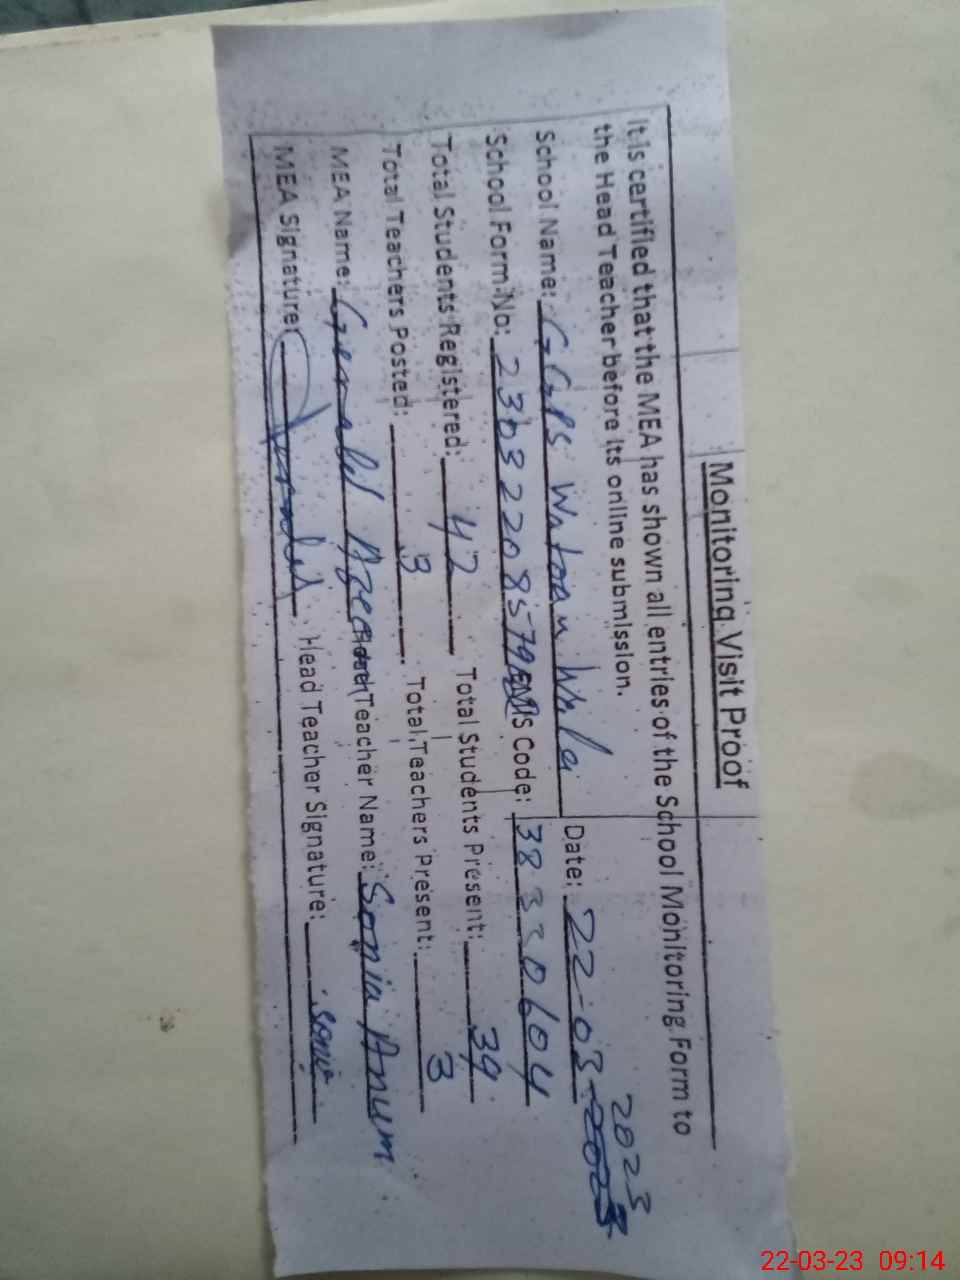 Monitoring Visit Proof
It is certified that the MEA has shown all entries of the School Monitoring Form to
the Head Teacher before its online submission.
2023
School Name: GGPS Watoan Wala Date: 22-03-2023
School Form No: 2303220857 EMIS Code: 38330604
Total Students Registered: 42 Total Students Present: 39
Total Teachers Posted: 3 Total Teachers Present: 3
MEA Name: Head Teacher Name: Sonia Anum
MEA Signature: Head Teacher Signature: Sonia
22-03-23 09:14